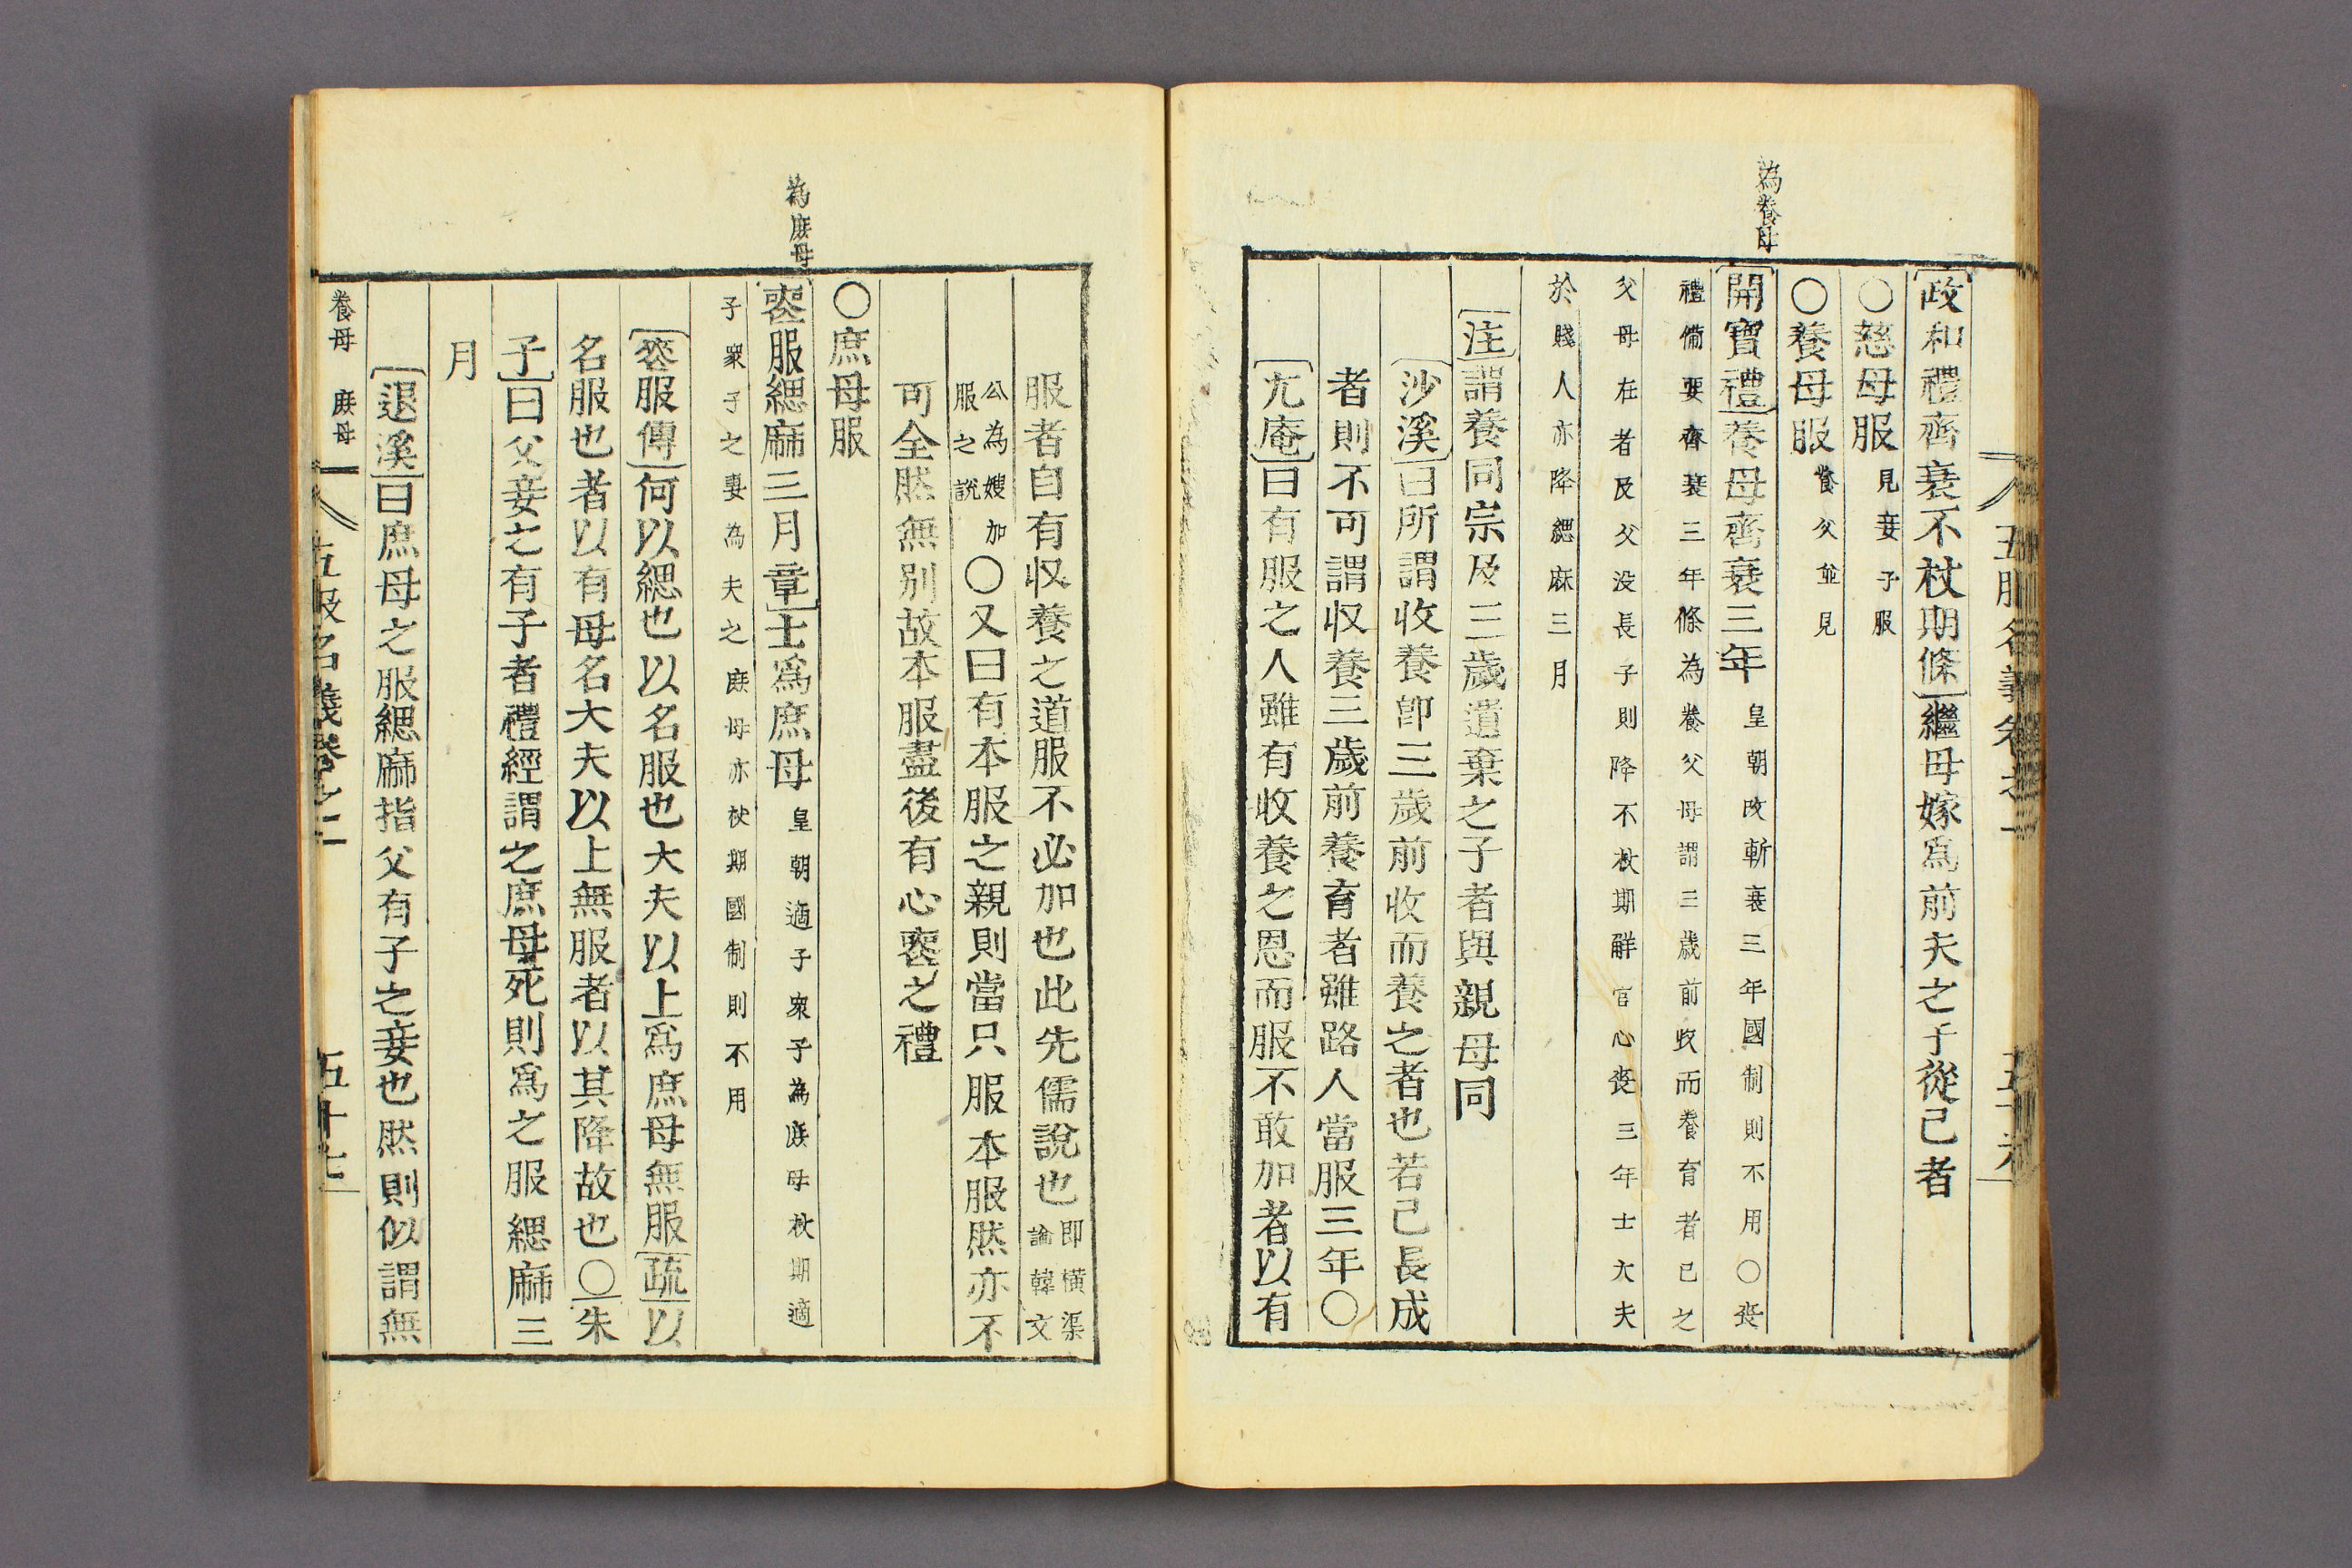 五服名義卷之二
五十六
為養母
政和禮齊衰不杖期條繼母嫁爲前夫之子從己者
○慈母服見妾子服
○養母服養父並見
開寶禮養母齊衰三年皇朝改斬衰三年國制則不用○喪
禮備要齊衰三年條為養父母謂三歲前收而養育者己之
父母在者及父没長子則降不杖期解官心喪三年士大夫
於賤人亦降緦麻三月
注謂養同宗及三歲遺棄之子者與親母同
沙溪曰所謂收養卽三歲前收而養之者也若己長成
者則不可謂収養三歲前養育者雖路人當服三年○
尤庵曰有服之人雖有收養之恩而服不敢加者以有
服者自有収養之道服不必加也此先儒說也即橫渠論韓文
公為嫂加服之說○又曰有本服之親則當只服本服然亦不
可全然無别故本服盡後有心喪之禮
○庶母服
為庶母
喪服緦麻三月章士爲庶母皇朝適子衆子為庶母杖期適
子衆子之妻為夫之庶母亦杖期國制則不用
喪服傳何以緦也以名服也大夫以上爲庶母無服疏以
名服也者以有母名大夫以上無服者以其降故也○朱
子曰父妾之有子者禮經謂之庶母死則爲之服緦麻三
月
退溪曰庶母之服緦麻指父有子之妾也然則似謂無
養母 庶母
五服名義卷之二
五十七